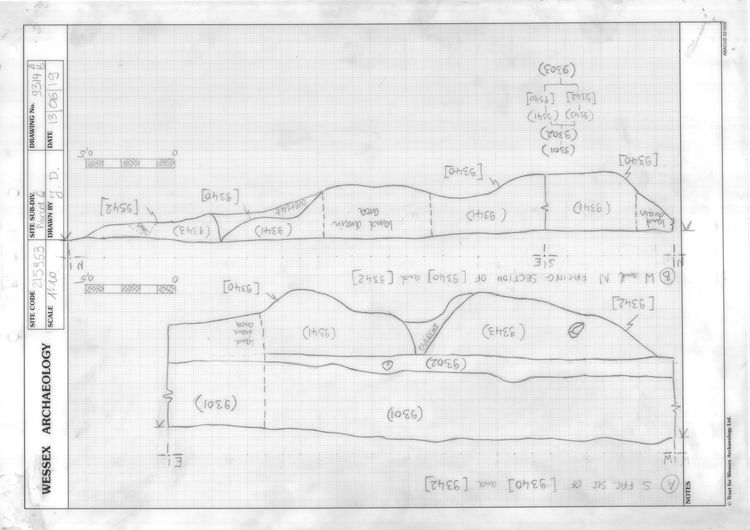 WESSEX ARCHAEOLOGY
SITE CODE 215553
SITE SUB-DIV.
DRAWING No. 9314 A B
SCALE 1:10
DRAWN BY J.D.
DATE 13/06/19
NOTES
© Trust for Wessex Archaeology Ltd.
(A) S. FAC. SEC OF [9340] and [9342]
W
E
(9301)
(9301)
(9302)
[9342]
(9343)
OVERCUT
(9341)
land drain area
[9340]
0
0,5
(B) W and N FACING SECTION OF [9340] and [9342]
N
S
E
N
land drain
(9341)
(9341)
land drain area
(9341)
(9343)
[9340]
[9340]
OVERCUT
[9340]
[9542]
0
0,5
(9301)
(9302)
(9343) (9341)
[9342] [9340]
(9303)